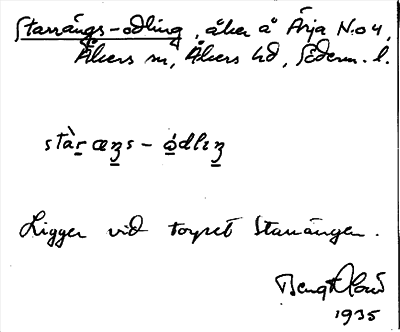 Starrängs-odling, åker å Ärja No 4,
Åkers sn, Åkers hd, Söderm. l.
stàr̲æŋs - o̲dlɩŋ
Ligger vid torpet Starrängen.
Bengt
1935